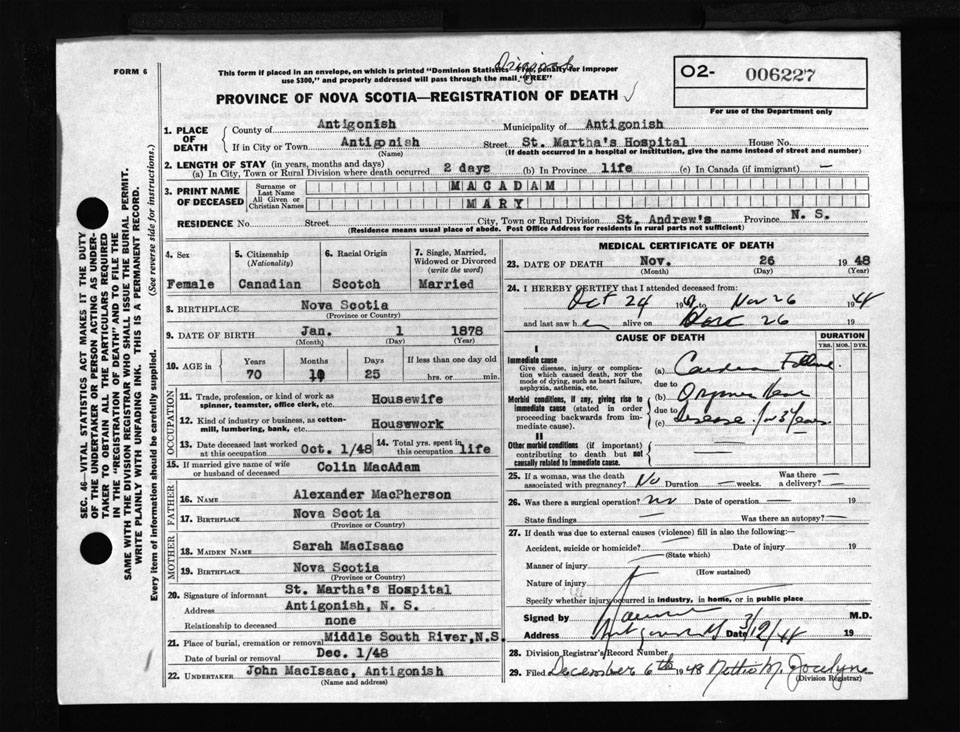 Original
FORM 6
This form if placed in an envelope, on which is printed "Dominion Statistics—Free, penalty for improper
use $300," and properly addressed will pass through the mail "FREE"
O2- 006227
For use of the Department only
PROVINCE OF NOVA SCOTIA—REGISTRATION OF DEATH ✓
1. PLACE OF DEATH { County of Antigonish Municipality of Antigonish
If in City or Town Antigonish Street St. Martha's Hospital House No.
(Name) (If death occurred in a hospital or institution, give the name instead of street and number)
2. LENGTH OF STAY (in years, months and days)
(a) In City, Town or Rural Division where death occurred 2 days (b) In Province life (c) In Canada (if immigrant) —
3. PRINT NAME OF DECEASED { Surname or Last Name MACADAM
All Given or Christian Names MARY
RESIDENCE No. Street City, Town or Rural Division St. Andrew's Province N. S.
(Residence means usual place of abode. Post Office Address for residents in rural parts not sufficient)
4. Sex 5. Citizenship (Nationality) 6. Racial Origin 7. Single, Married, Widowed or Divorced (write the word)
Female Canadian Scotch Married
8. BIRTHPLACE Nova Scotia
(Province or Country)
9. DATE OF BIRTH Jan. 1 1878
(Month) (Day) (Year)
10. AGE in { Years Months Days If less than one day old
70 10 25 hrs. or min.
OCCUPATION
11. Trade, profession, or kind of work as spinner, teamster, office clerk, etc. Housewife
12. Kind of industry or business, as cotten-mill, lumbering, bank, etc. Housework
13. Date deceased last worked at this occupation Oct. 1/48 14. Total yrs. spent in this occupation life
15. If married give name of wife or husband of deceased Colin MacAdam
FATHER
16. NAME Alexander MacPherson
17. BIRTHPLACE Nova Scotia
(Province or Country)
MOTHER
18. MAIDEN NAME Sarah MacIsaac
19. BIRTHPLACE Nova Scotia
(Province or Country)
20. Signature of informant St. Martha's Hospital
Address Antigonish, N. S.
Relationship to deceased none
21. Place of burial, cremation or removal Middle South River, N.S.
Date of burial or removal Dec. 1/48
22. UNDERTAKER John MacIsaac, Antigonish
(Name and address)
MEDICAL CERTIFICATE OF DEATH
23. DATE OF DEATH Nov. 26 1948
(Month) (Day) (Year)
24. I HEREBY CERTIFY that I attended deceased from:
Oct 24 19 to Nov 26 194
and last saw h alive on 26 19
CAUSE OF DEATH DURATION
YRS. MOS. DYS.
I
Immediate cause
Give disease, injury or complication which caused death, NOT the mode of dying, such as heart failure, asphyxia, asthenia, etc.
(a)
due to
Morbid conditions, if any, giving rise to immediate cause (stated in order proceeding backwards from immediate cause).
(b)
due to
(c) Disease
II
Other morbid conditions (if important) contributing to death but not causally related to immediate cause.
25. If a woman, was the death associated with pregnancy? No Duration — weeks. Was there a delivery? —
26. Was there a surgical operation? No Date of operation — 19
State findings — Was there an autopsy? —
27. If death was due to external causes (violence) fill in also the following:—
Accident, suicide or homicide? Date of injury 19
(State which)
Manner of injury
(How sustained)
Nature of injury
Specify whether injury occurred in industry, in home, or in public place
Signed by M.D.
Address Date 3/12/4 19
28. Division Registrar's Record Number
29. Filed December 6th 1948 M. Jocelyne
(Division Registrar)
SEC. 46—VITAL STATISTICS ACT MAKES IT THE DUTY
OF THE UNDERTAKER OR PERSON ACTING AS UNDER-
TAKER TO OBTAIN ALL THE PARTICULARS REQUIRED
IN THE "REGISTRATION OF DEATH" AND TO FILE THE
SAME WITH THE DIVISION REGISTRAR WHO SHALL ISSUE THE BURIAL PERMIT.
WRITE PLAINLY WITH UNFADING INK. THIS IS A PERMANENT RECORD.
Every item of information should be carefully supplied. (See reverse side for instructions.)